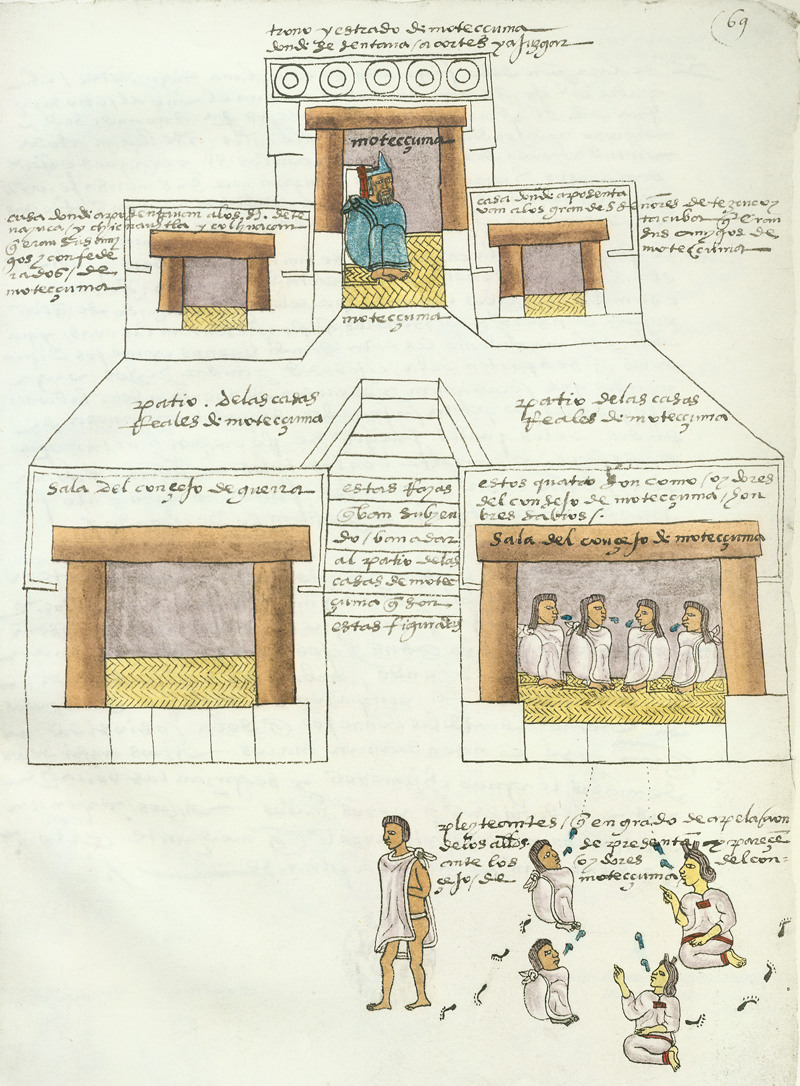 69
trono y estrado de moteccuma
donde se sentava / a cortes y a juzgar
moteccuma
casa donde aposentavan a los S. de te
nayuca / y chicnauhtla y colhuacan
q̃ eran sus ami
gos y confede
rados / de
moteccuma
casa donde aposenta
van a los grandes S
ñores de tezcuco y
tacuba q̃ eran
sus amygos de
moteccuma
moteccuma
patio . de las casas
Reales de moteccuma
patio de las casas
Reales de moteccuma
Sala del conçejo de guerra
estas Rayas
q̃ van subyen
do / van a dar
al patio de las
casas de motec
çuma q̃ son
estas figuradas
estos quatro son como / oydores
del consejo de moteccuma / hon
bres sabios /.
Sala del conçejo de moteccuma
pleyteantes / q̃ en grado de apelaçion
de los allðs se presentã y pareçẽ
ante los oydores del con-
çejo / de moteccuma